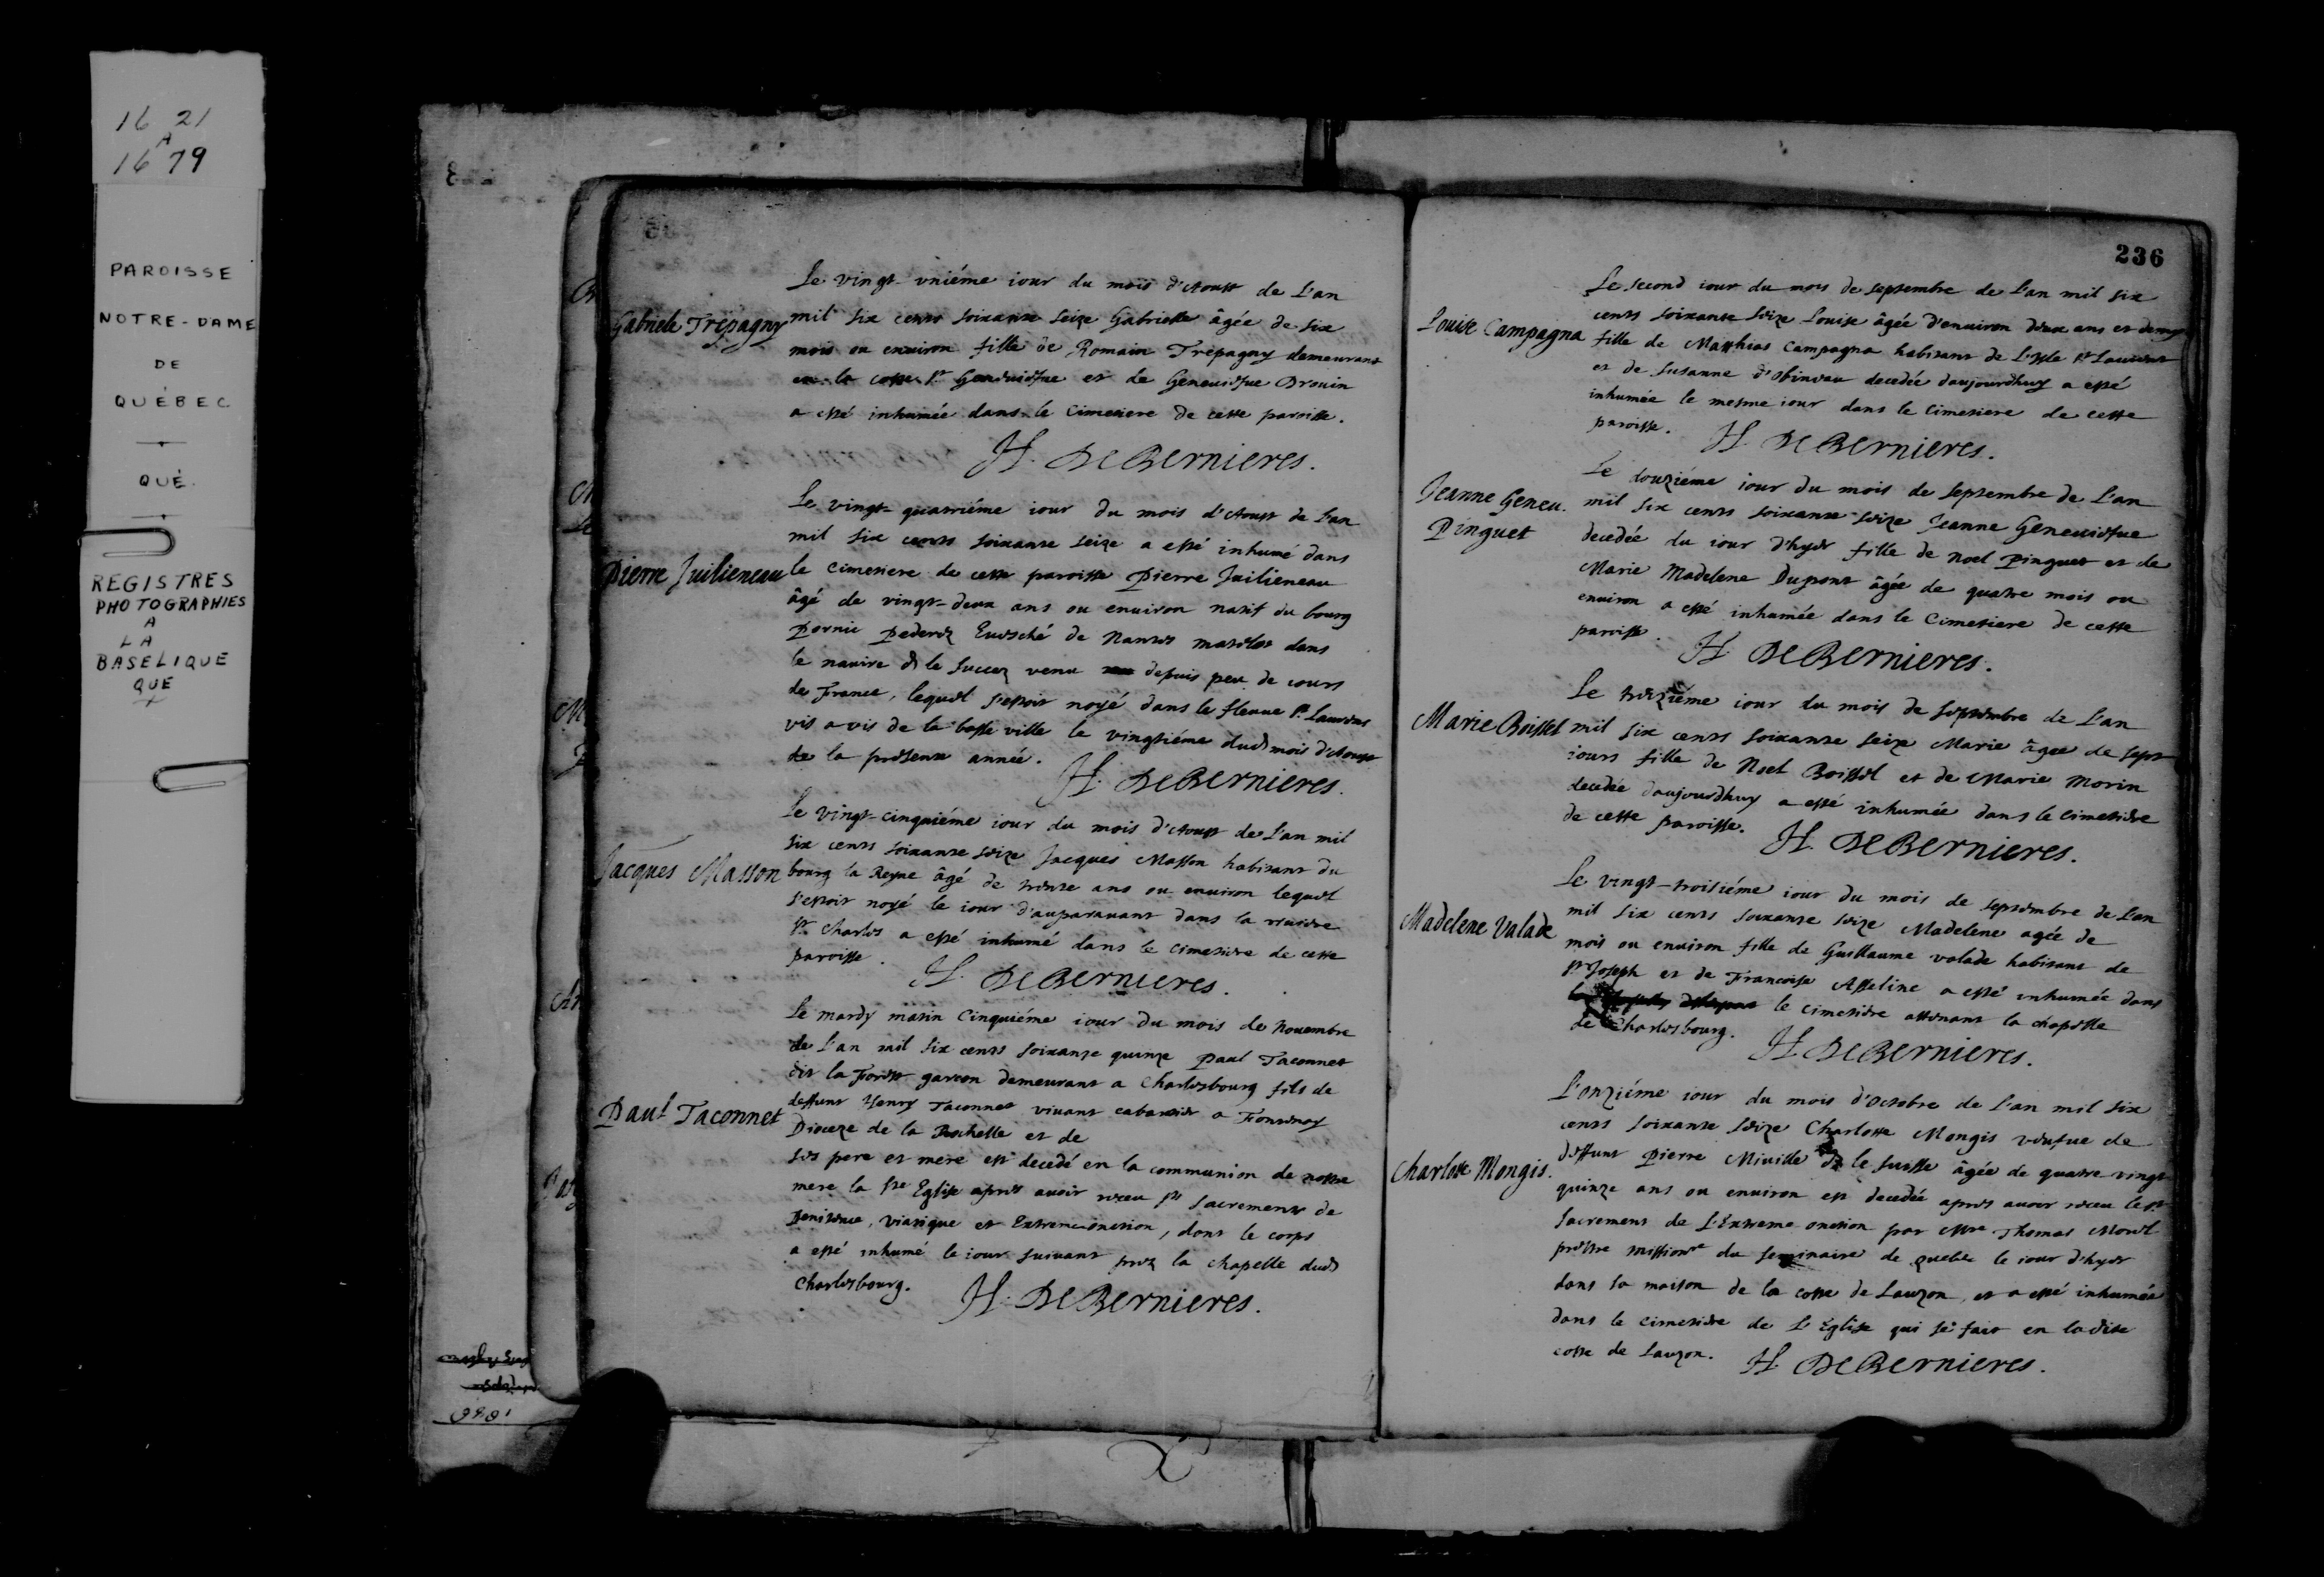 16 21
A
16 79
PAROISSE
NOTRE-DAME
DE
QUÉBEC
QUÉ.
REGISTRES
PHOTOGRAPHIES
A
LA
BASELIQUE
QUE
Gabriele Trepagny
Le vingt-uniéme iour du mois d'Aoust de L'an
mil six cents soixante seize Gabrielle âgée de six
mois ou enuiron fille de Romain Trepagny demeurant
en la coste Ste Geneuiefue et de Geneuiefue Drouin
a esté inhumée dans le Cimetiere de cette paroisse.
H. DeBernieres.
Pierre Juilieneau
Le vingt-quatriéme iour du mois d'Aoust de L'an
mil six cents soixante seize a esté inhumé dans
le cimetiere de cette paroisse Pierre Juilieneau
âgé de vingt-deux ans ou enuiron natif du bourg
Pornic Euesché de Nantes matelot dans
le nauire dt le Succez venu depuis peu de iours
de France, lequel s'estoit noyé dans le fleuue St. Laurens
vis a vis de la basse ville le vingtiéme dudt mois d'Aoust
de la presente année.
H. DeBernieres.
Jacques Masson
Le vingt-cinquiéme iour du mois d'Aoust de L'an mil
six cents soixante seize Jacques Masson habitant du
bourg la Reyne âgé de trente ans ou enuiron lequel
s'estoit noyé le iour d'auparauant dans la riuiere
St Charles a esté inhumé dans le cimetiere de cette
paroisse.
H. DeBernieres.
Paul Taconnet
Le mardy matin Cinquiéme iour du mois de Nouembre
de L'an mil six cents soixante quinze Paul Taconnet
dit la Forest garçon demeurant a Charlesbourg fils de
deffunt Henry Taconnet viuant cabaretier a Fontenay
Dioceze de la Rochelle et de
ses pere et mere est decedé en la communion de nostre
mere la Ste Eglise aprés auoir receu sts Sacrements de
Penitence, viatique et Extreme-onction, dont le corps
a esté inhumé le iour suiuant prez la chapelle dudt
Charlesbourg.
H. DeBernieres.
236
Louise Campagna
Le second iour du mois de septembre de L'an mil six
cents soixante seize Louise âgée d'enuiron deux ans et demy
fille de Matthias Campagna habitant de L'Isle St Laurent
et de Susanne d'Obineau decedée daujourdhuy a esté
inhumée le mesme iour dans le Cimetiere de cette
paroisse.
H. DeBernieres.
Jeanne Geneu.
Pinguet
Le douziéme iour du mois de septembre de L'an
mil six cents soixante seize Jeanne Geneuiefue
decedée du iour d'hyer fille de Noel Pinguet et de
Marie Madelene Dupont âgée de quatre mois ou
enuiron a esté inhumée dans le Cimetiere de cette
paroisse.
H. DeBernieres.
Marie Boissel
Le treiziéme iour du mois de septembre de L'an
mil six cents soixante seize Marie âgée de sept
iours fille de Noel Boissel et de Marie Morin
decedée daujourdhuy a esté inhumée dans le cimetiere
de cette paroisse.
H. DeBernieres.
Madelene Valade
Le vingt-troisiéme iour du mois de septembre de L'an
mil six cents soixante seize Madelene agée de
mois ou enuiron fille de Guillaume valade habitant de
St Joseph et de Françoise Asseline a esté inhumée dans
le cimetiere attenant la chapelle
de Charlesbourg.
H. DeBernieres.
Charlotte Mongis.
L'onziéme iour du mois d'Octobre de L'an mil six
cents soixante seize Charlotte Mongis veufue de
deffunt Pierre Miuille dt le suisse âgée de quatre vingt
quinze ans ou enuiron est decedée aprés auoir receu le st
Sacrement de L'Extreme onction par Mre Thomas Morel
prestre missionre du seminaire de Quebec le iour d'hyer
dans sa maison de la coste de Lauzon, et a esté inhumée
dans le cimetiere de L'Eglise qui se fait en ladite
coste de Lauzon.
H. DeBernieres.